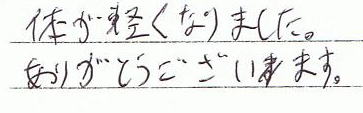 体が軽くなりました。
ありがとうございます。